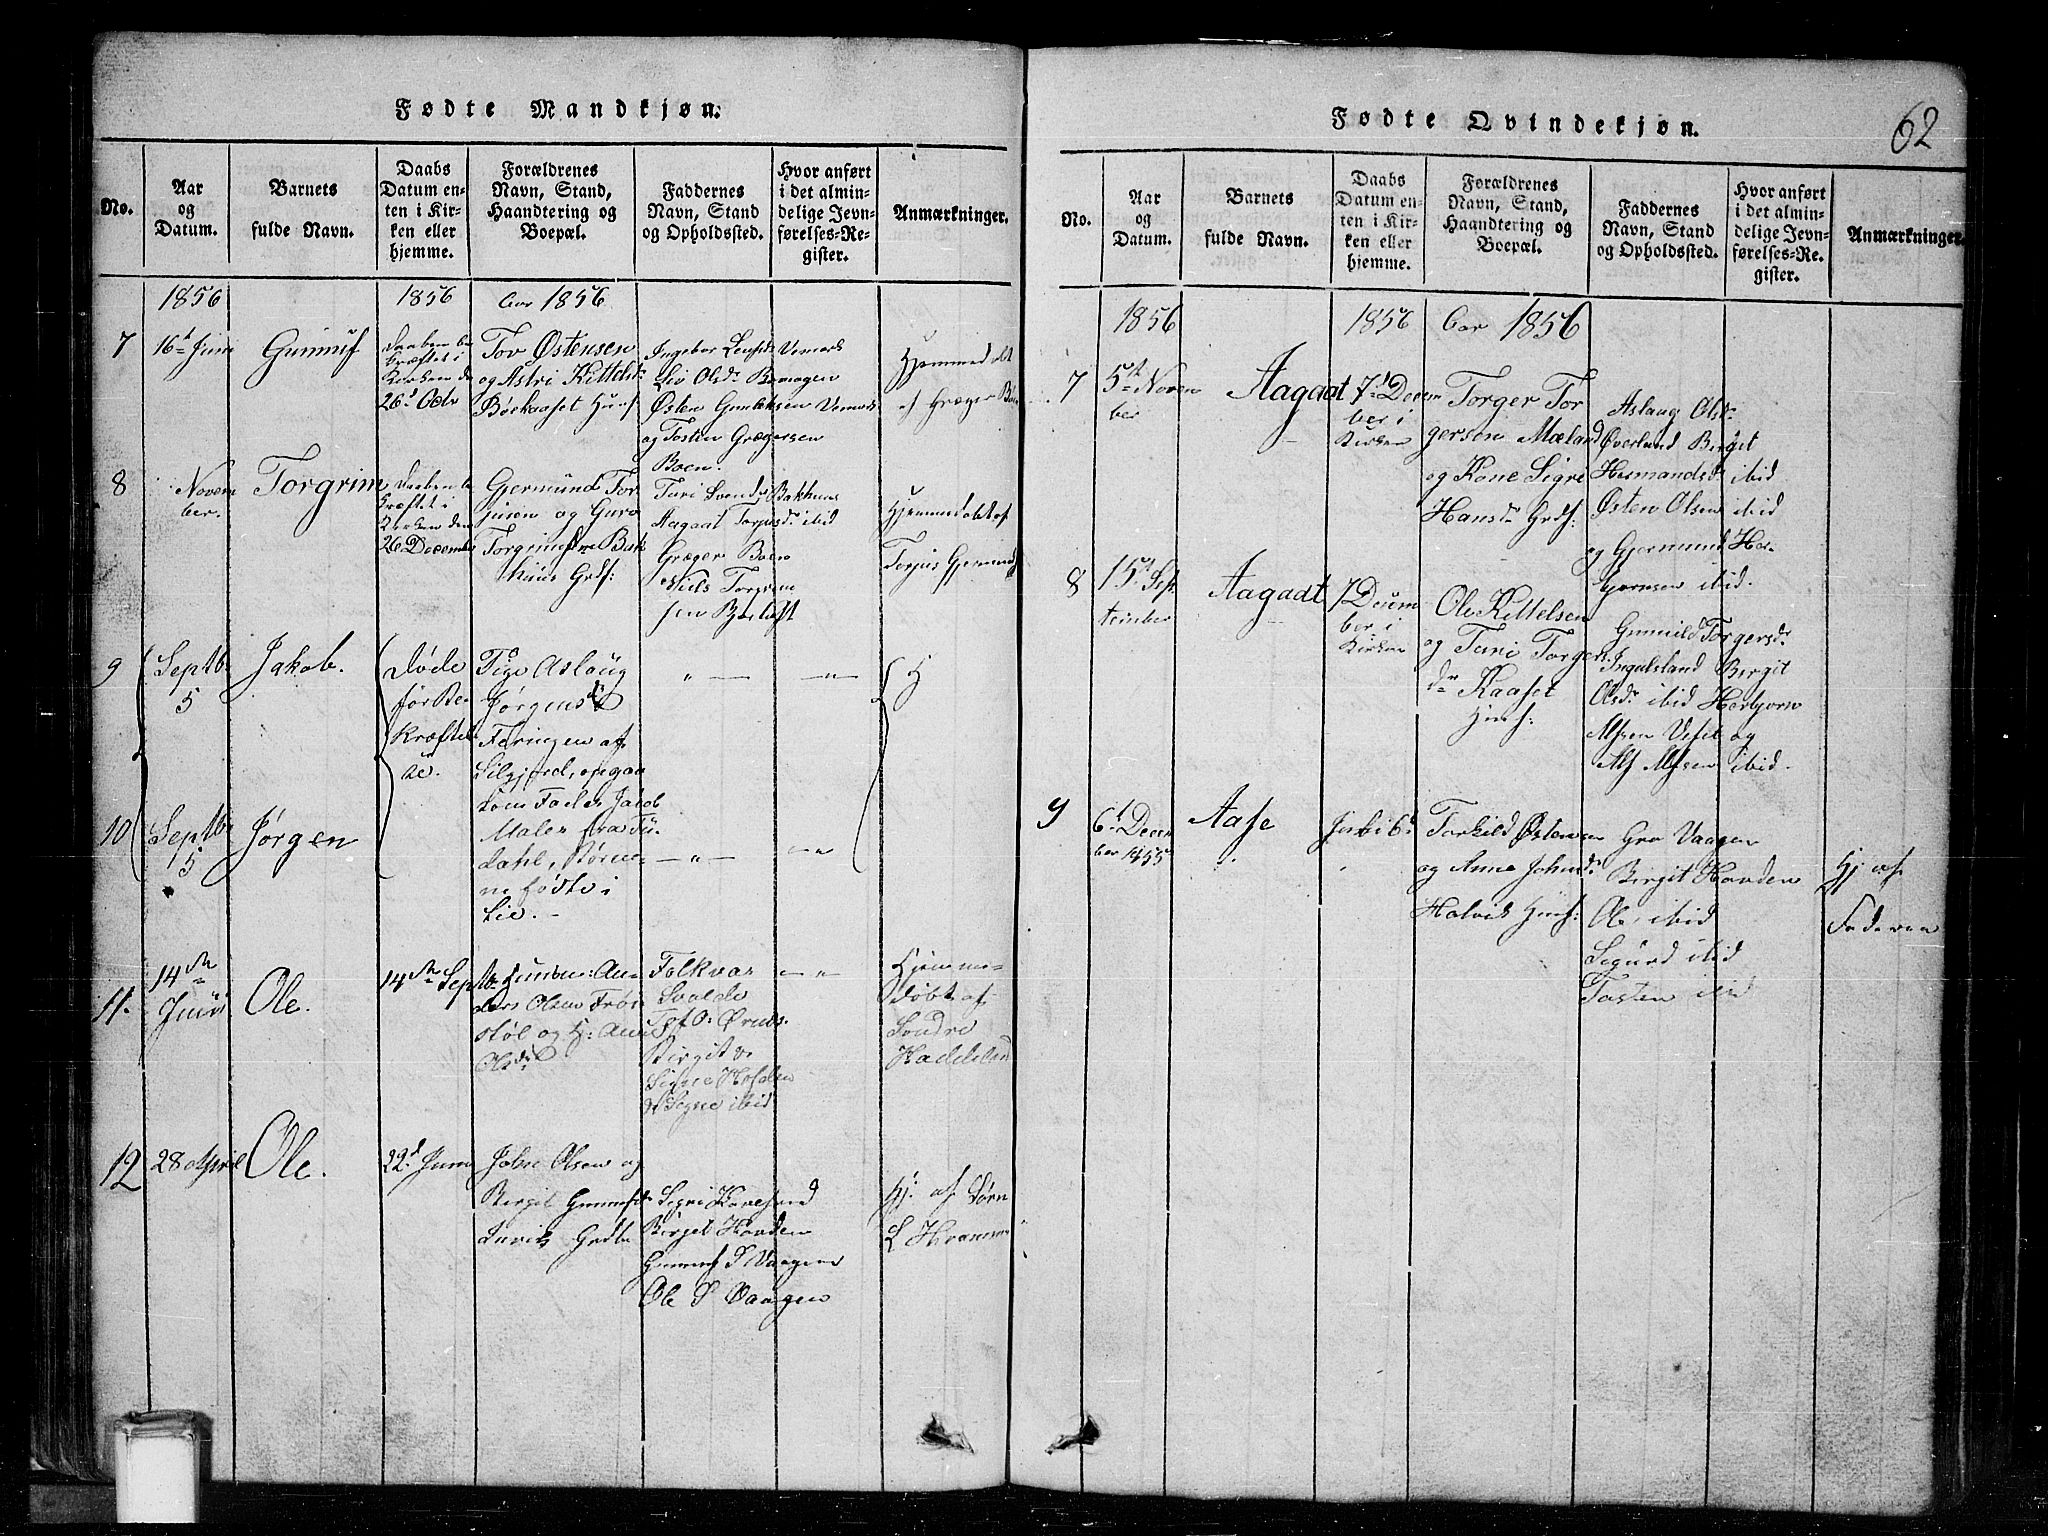 Fødte Mandkjøn.
No.
Aar
og
Datum.
Barnets
fulde Navn.
Daabs
Datum en-
ten i Kir-
ken eller
hjemme.
Forældrenes
Navn, Stand,
Haandtering og
Boepæl.
Faddernes
Navn, Stand
og Opholdssted.
Hvor anført
i det almin-
delige Jevn-
førelses-Re-
gister.
Anmærkninger.
1856
1856
Aar 1856
7
16 Juni
Gunnuf
Daaben be
kræftet i
Kirken de
26d
Tov Østensen
og Astri Kittelsdr
Bøekaaset Husf
Ingebor
Liv Olsdr Bømogen
Østen Gunleksen Vemork
og Tosten Grægersen
Boen.
Hjemmedøbt
af Græger Boen
8
Novem
ber.
Torgrim
Daaben be
kræftet i
Kirken den
26 Decembr
Gjermund Tor
jusen og Guro
Torgrimsdr Bak
huus Grdf:
Turi Svendsdr Bakhuus
Aagaat Torjusdr ibid
Græger Boen
Niels Torgrim
sen
Hjemmedøbt af
Torjus Gjermunds
9
Septb.
5
Jakob.
Døde
før Be-
kræftel-
se.
Aslaug
Jørgensd
af
Siljord, opgav
som Fader Jakob
Maler fra Tu-
dahl, Børne-
ne fødte i
Lie.
10
Septb.
15
Jørgen
11.
14de
Juni
Ole.
14de Septb.
An-
ders Olsen Frøi
støl og K: Anne
Olsd
Folkvar
Svalde
Birgit
Signe Hovden
Signe ibid
Hjemme-
døbt af
Sondre
Haddeland
12
28 April
Ole.
22d Juni
John Olsen og
Birgit Gunnufsdr
Grdbr
Sigri
Birget Hovden
Gunnuf S Vaagen
Ole S Vaagen
Hj. af Jørn
L
Fødte Qvindekjøn.
62
No.
Aar
og
Datum.
Barnets
fulde Navn.
Daabs
Datum en-
ten i Kir-
ken eller
hjemme.
Forældrenes
Navn, Stand,
Haandtering og
Boepæl.
Faddernes
Navn, Stand
og Opholdssted.
Hvor anført
i det almin-
delige Jevn-
førelses-Re-
gister.
Anmærkninger.
1856
1856
Aar 1856
7
5te Novem
ber
Aagaat
7d Decem
ber i
Kirken
Torger Tor
gersen Mæland
og Kone Sigri
Hansdr Grdf:
Aslaug Olsdr
Øverland Birget
Hermandsd ibid
Østen Olsen ibid
og Gjermund Her-
bjørnsen ibid.
8
15 Sep
tember
Aagadt
7 Decem
ber i
Kirken
Ole Kittelsen
og Turi Torgers
dr Kaaset
Huusf:
Gunnild Torgersdr
Ingulsland Birgit
Olsdr ibid Herbjørn
Alfsen Vesit og
Alf Alfsen ibid.
9
6d Decem
ber 1855
Aase
Torkild Østensen
og Anne Johnsdr
Holvik Husf:
Gro Vaagen
Birgit Hovden
Ole ibid
Sigurd ibid
Tosten ibid
Hj af
Faderen